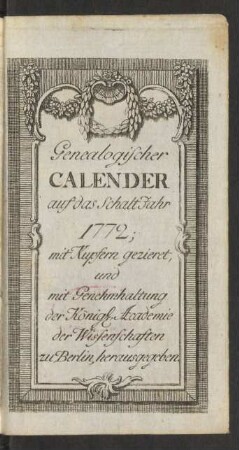 Genealogischer
CALENDER
auf das Schalt Jahr
1772;
mit Kupfern gezieret,
und
mit Genehmhaltung
der Königl. Academie
der Wissenschaften
zu Berlin, herausgegeben.